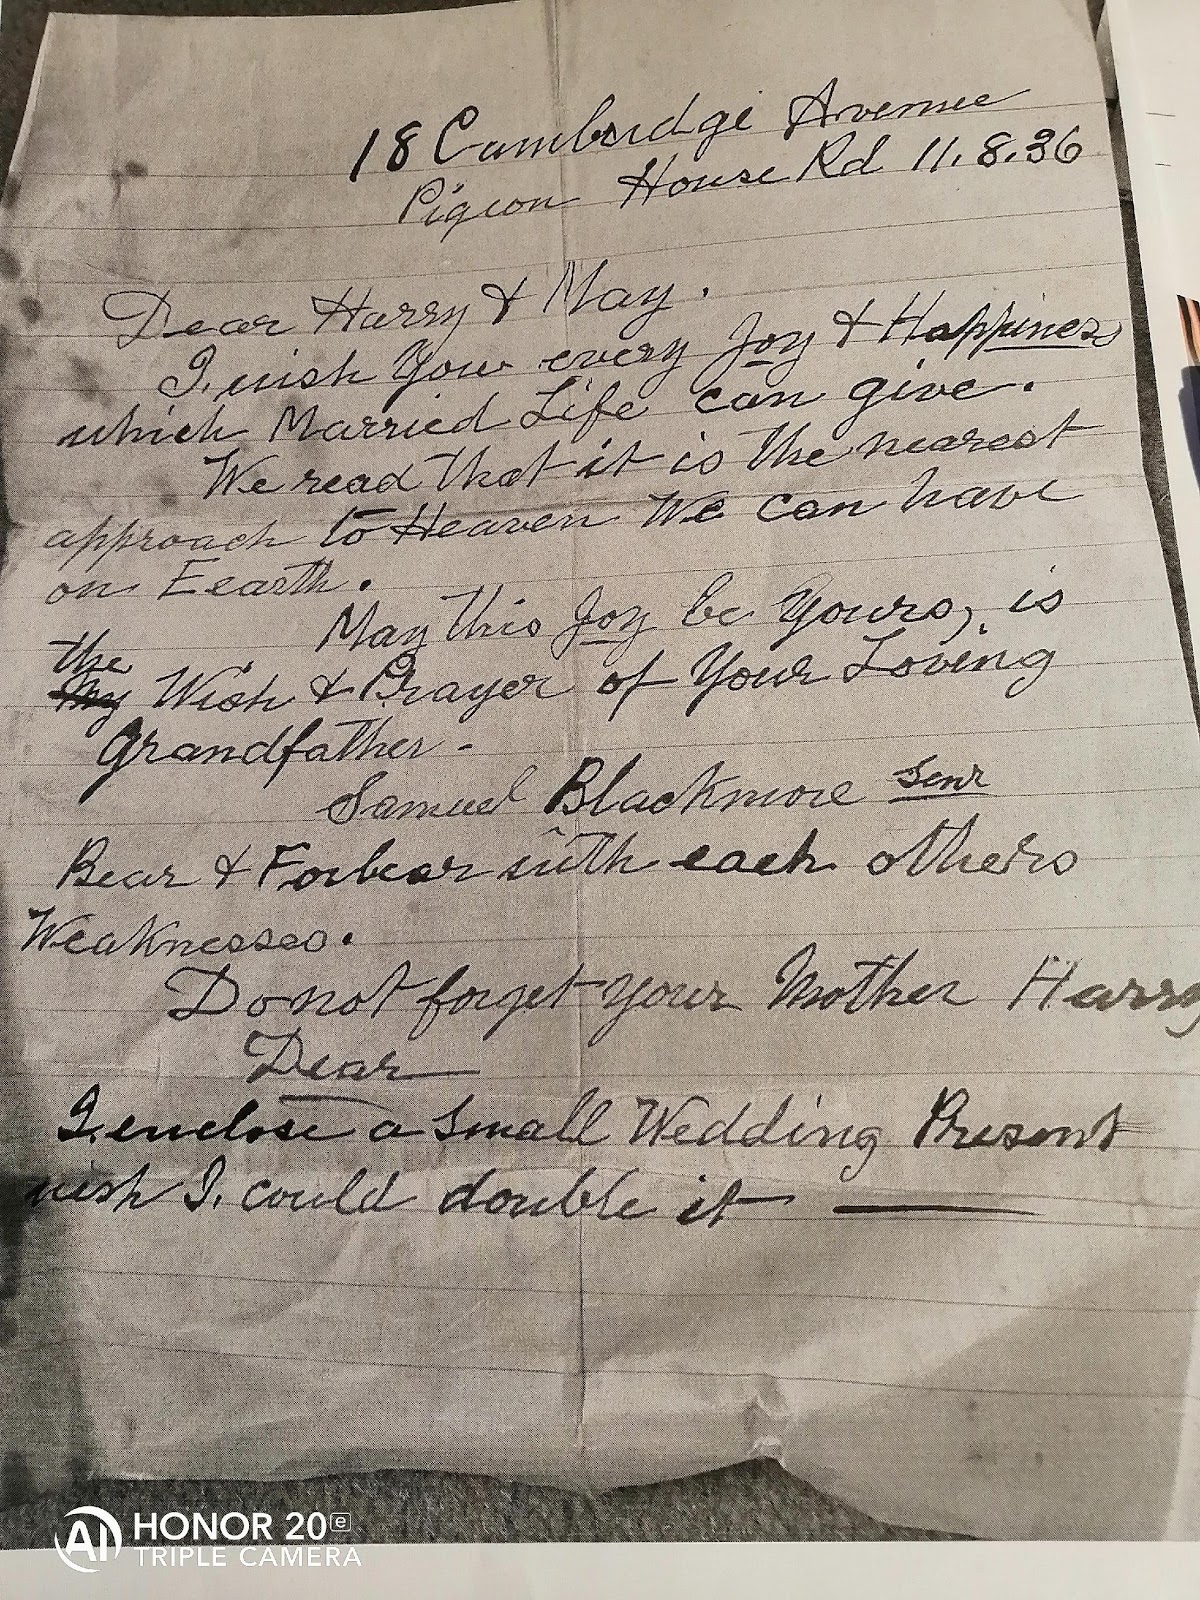 18 Cambridge Avenue
Pigeon House Rd 11.8.36
Dear Harry & May.
I. wish You every Joy & Happiness
which Married Life can give.
We read that it is the nearest
approach to Heaven We can have
on Eearth.
May this Joy be Yours, is
the
My Wish & Prayer of Your Loving
Grandfather -
Samuel Blackmore Senr
Bear & Forbear with each others
Weaknesses.
Do not forget your Mother Harry
Dear
I. enclose a Small Wedding Present
wish I. could double it
AI HONOR 20 e
TRIPLE CAMERA